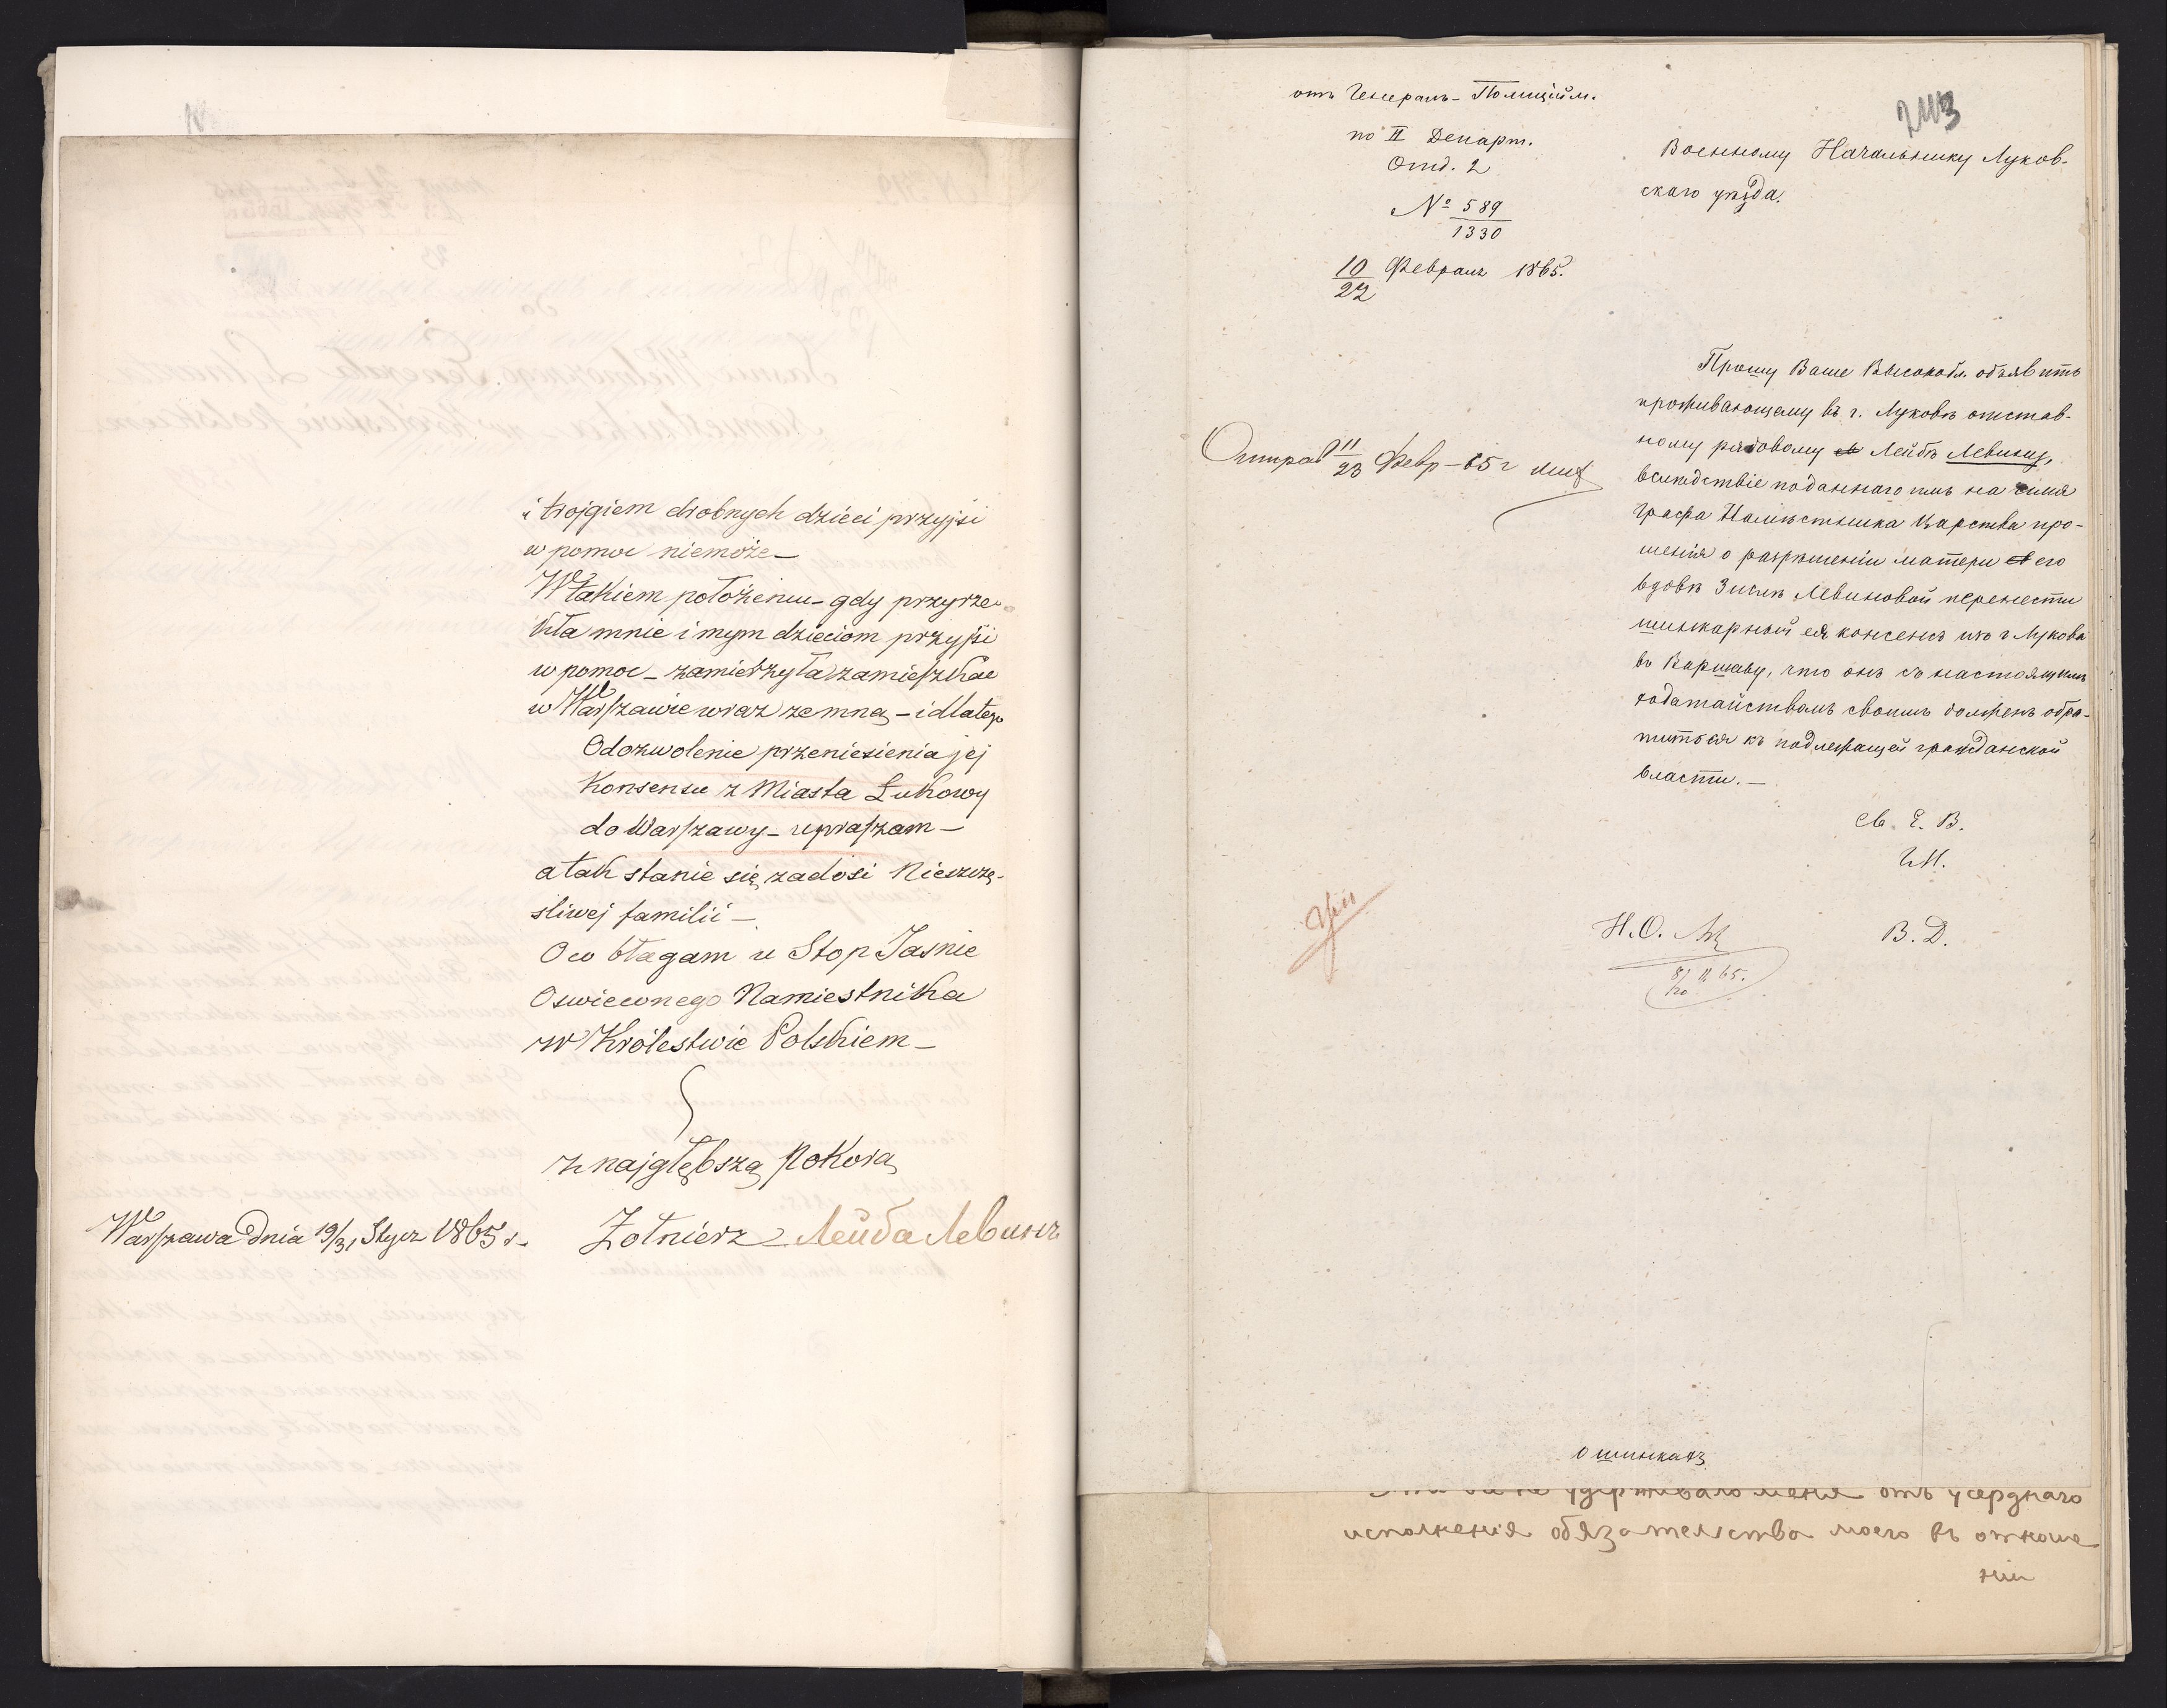 i trojgiem drobnych dzieci przyjsi
w pomoc niemoże –
W takiem położeniu – gdy przyrze-
kła mnie i mym dzieciom przyjsi
w pomoc – zamierzyła zamieszkac
w Warszawie wraz zemną – i dlatego
O dozwolenie przeniesienia jej
Konsensu z Miasta Łukowy
do Warszawy – upraszam –
a tak stanie się zadosi Nieszczę-
sliwej familii –
O co błagam u Stop Jasnie
Oswieconego Namiestnika
w Królestwie Polskiem –
z najgłębszą pokorą
Warszawa dnia 19/31 Stycz 1865 r. Żołnierz – Лейба Левинъ
отъ Генералъ-Полиційм.
по II Департ.
Отд. 2
№ 589
1330
10/22 Февраля 1865.
243
Военному Начальнику Луков-
скаго уѣзда.
Прошу Ваше Высокобл. объявить
проживающему въ г. Луковѣ отстав-
ному рядовому Лейбѣ Левину,
вслѣдствіе поданнаго имъ на имя
Графа Намѣстника Царства про-
шенія о разрѣшеніи матери его
вдовѣ Зислѣ Левиновой перенести
шинкарный ея консенсъ изъ г Лукова
въ Варшаву, что онъ съ настоящимъ
ходатайствомъ своимъ долженъ обра-
титься къ подлежащей гражданской
власти. –
Отправ 11/23 Февр – 65 г
Св. Е. В.
Г. М.
Н. О.
В. Д.
8/20 II 65.
О шинкахъ
удерживало меня отъ усерднаго
исполненія обязательства моего въ отноше
ніи